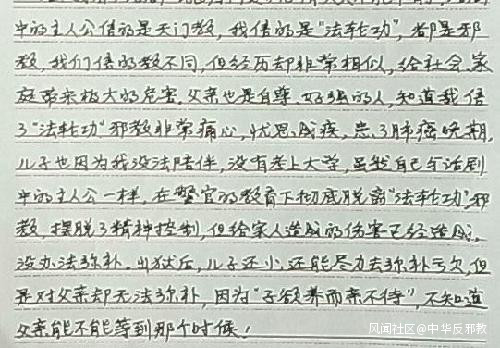 中的主人公信的是天门教，我信的是“法轮功”，都是邪
教，我们信的教不同，但经历却非常相似，给社会、家
庭带来极大的危害。父亲也是自尊、好强的人，知道我信
了“法轮功”邪教非常痛心，忧思成疾，患了肺癌晚期，
儿子也因为我没法陪伴，没有考上大学，虽然自己与话剧
中的主人公一样，在警官的教育下彻底脱离“法轮功”邪
教，摆脱了精神控制，但给家人造成的伤害已经造成，
没办法弥补。出狱后，儿子还小，还能尽力去弥补亏欠，但
是对父亲却无法弥补，因为“子欲养而亲不待”，不知道
父亲能不能等到那个时候！
风闻社区@中华反邪教